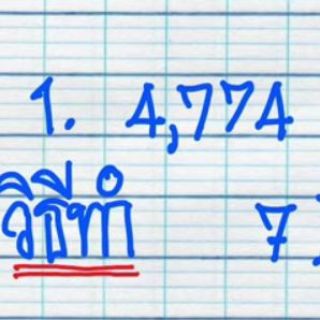 1. 4,774
วิธีทำ 7